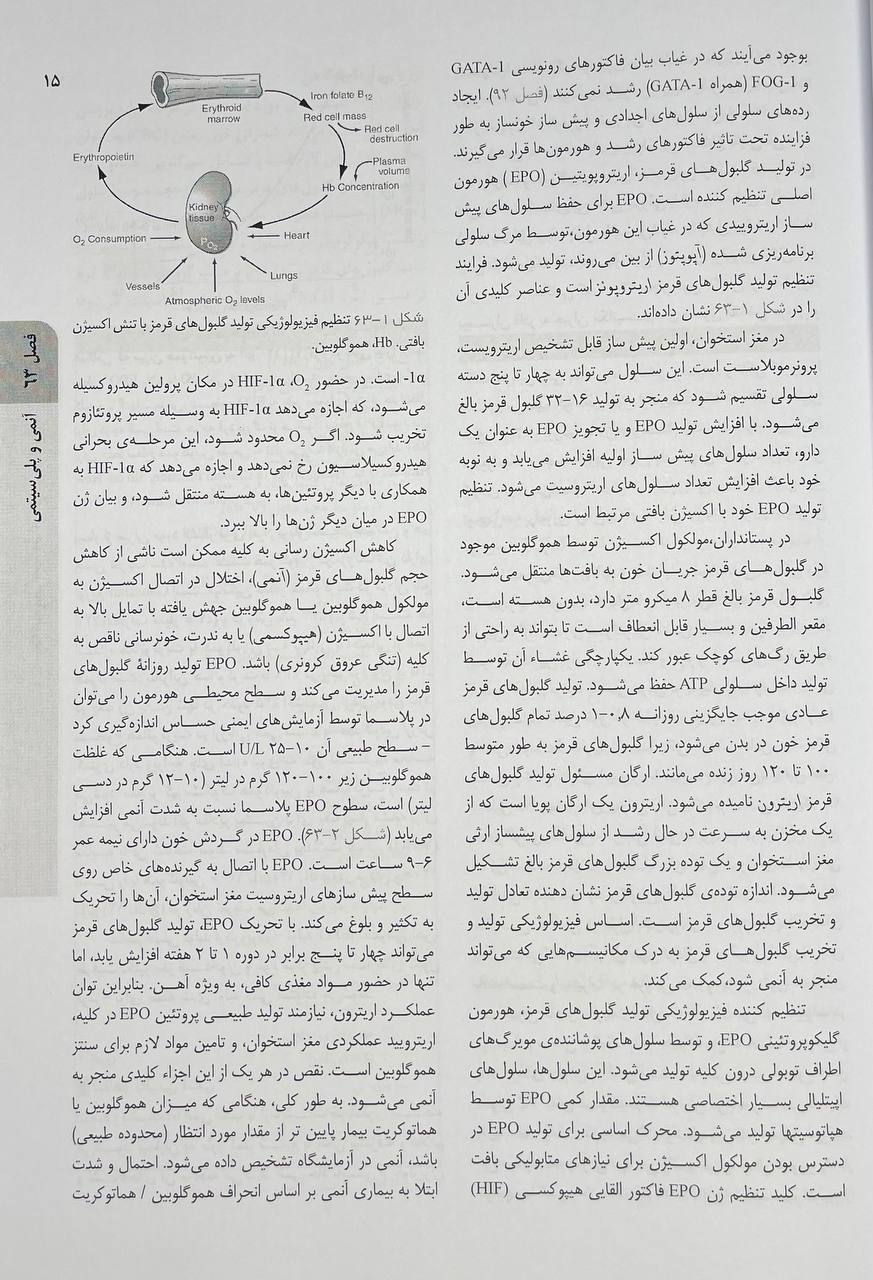 ۱۵
بوجود می‌آیند که در غیاب بیان فاکتورهای رونویسی GATA-1
و FOG-1 (همراه GATA-1) رشد نمی‌کنند (فصل ۹۲). ایجاد
رده‌های سلولی از سلول‌های اجدادی و پیش ساز خونساز به طور
فزاینده تحت تاثیر فاکتورهای رشد و هورمون‌ها قرار می‌گیرند.
در تولید گلبول‌های قرمز، اریتروپویتین (EPO) هورمون
اصلی تنظیم کننده است. EPO برای حفظ سلول‌های پیش
ساز اریتروییدی که در غیاب این هورمون،توسط مرگ سلولی
برنامه‌ریزی شده (آپوپتوز) از بین می‌روند، تولید می‌شود. فرایند
تنظیم تولید گلبول‌های قرمز اریتروپوئز است و عناصر کلیدی آن
را در شکل ۱-۶۳ نشان داده‌اند.
در مغز استخوان، اولین پیش ساز قابل تشخیص اریترویست،
پرونرموبلاست است. این سلول می‌تواند به چهار تا پنج دسته
سلولی تقسیم شود که منجر به تولید ۱۶-۳۲ گلبول قرمز بالغ
می‌شود. با افزایش تولید EPO و یا تجویز EPO به عنوان یک
دارو، تعداد سلول‌های پیش ساز اولیه افزایش می‌یابد و به نوبه
خود باعث افزایش تعداد سلول‌های اریتروسیت می‌شود. تنظیم
تولید EPO خود با اکسیژن بافتی مرتبط است.
در پستانداران،مولکول اکسیژن توسط هموگلوبین موجود
در گلبول‌های قرمز جریان خون به بافت‌ها منتقل می‌شود.
گلبول قرمز بالغ قطر ۸ میکرو متر دارد، بدون هسته است،
مقعر الطرفین و بسیار قابل انعطاف است تا بتواند به راحتی از
طریق رگ‌های کوچک عبور کند. یکپارچگی غشاء آن توسط
تولید داخل سلولی ATP حفظ می‌شود. تولید گلبول‌های قرمز
عادی موجب جایگزینی روزانه ۰٫۸-۱ درصد تمام گلبول‌های
قرمز خون در بدن می‌شود، زیرا گلبول‌های قرمز به طور متوسط
۱۰۰ تا ۱۲۰ روز زنده می‌مانند. ارگان مسئول تولید گلبول‌های
قرمز اریترون نامیده می‌شود. اریترون یک ارگان پویا است که از
یک مخزن به سرعت در حال رشد از سلول‌های پیشساز ارثی
مغز استخوان و یک توده بزرگ گلبول‌های قرمز بالغ تشکیل
می‌شود. اندازه توده‌ی گلبول‌های قرمز نشان دهنده تعادل تولید
و تخریب گلبول‌های قرمز است. اساس فیزیولوژیکی تولید و
تخریب گلبول‌های قرمز به درک مکانیسم‌هایی که می‌تواند
منجر به آنمی شود،کمک می کند.
تنظیم کننده فیزیولوژیکی تولید گلبول‌های قرمز، هورمون
گلیکوپروتئینی EPO، و توسط سلول‌های پوشاننده‌ی مویرگ‌های
اطراف توبولی درون کلیه تولید می‌شود. این سلول‌ها، سلول‌های
اپیتلیالی بسیار اختصاصی هستند. مقدار کمی EPO توسط
هپاتوسیتها تولید می‌شود. محرک اساسی برای تولید EPO در
دسترس بودن مولکول اکسیژن برای نیازهای متابولیکی بافت
است. کلید تنظیم ژن EPO فاکتور القایی هیپوکسی (HIF)
Erythroid
marrow
Iron folate B12
Red cell mass
Red cell
destruction
Plasma
volume
Hb Concentration
Erythropoietin
Kidney
tissue
PO2
O2 Consumption
Heart
Vessels
Lungs
Atmospheric O2 levels
شکل ۱-۶۳ تنظیم فیزیولوژیکی تولید گلبول‌های قرمز با تنش اکسیژن
بافتی. Hb، هموگلوبین.
1α- است. در حضور O2، HIF-1α در مکان پرولین هیدروکسیله
می‌شود، که اجازه می‌دهد HIF-1α به وسیله مسیر پروتئازوم
تخریب شود. اگر O2 محدود شود، این مرحله‌ی بحرانی
هیدروکسیلاسیون رخ نمی‌دهد و اجازه می‌دهد که HIF-1α به
همکاری با دیگر پروتئین‌ها، به هسته منتقل شود، و بیان ژن
EPO در میان دیگر ژن‌ها را بالا ببرد.
کاهش اکسیژن رسانی به کلیه ممکن است ناشی از کاهش
حجم گلبول‌های قرمز (آنمی)، اختلال در اتصال اکسیژن به
مولکول هموگلوبین یا هموگلوبین جهش یافته با تمایل بالا به
اتصال با اکسیژن (هیپوکسمی) یا به ندرت، خونرسانی ناقص به
کلیه (تنگی عروق کرونری) باشد. EPO تولید روزانهٔ گلبول‌های
قرمز را مدیریت می‌کند و سطح محیطی هورمون را می‌توان
در پلاسما توسط آزمایش‌های ایمنی حساس اندازه‌گیری کرد
– سطح طبیعی آن ۱۰-۲۵ U/L است. هنگامی که غلظت
هموگلوبین زیر ۱۰۰-۱۲۰ گرم در لیتر (۱۰-۱۲ گرم در دسی
لیتر) است، سطوح EPO پلاسما نسبت به شدت آنمی افزایش
می‌یابد (شکل ۲-۶۳). EPO در گردش خون دارای نیمه عمر
۶-۹ ساعت است. EPO با اتصال به گیرنده‌های خاص روی
سطح پیش سازهای اریتروسیت مغز استخوان، آن‌ها را تحریک
به تکثیر و بلوغ می‌کند. با تحریک EPO، تولید گلبول‌های قرمز
می‌تواند چهار تا پنج برابر در دوره ۱ تا ۲ هفته افزایش یابد، اما
تنها در حضور مواد مغذی کافی، به ویژه آهن. بنابراین توان
عملکرد اریترون، نیازمند تولید طبیعی پروتئین EPO در کلیه،
اریترویید عملکردی مغز استخوان، و تامین مواد لازم برای سنتز
هموگلوبین است. نقص در هر یک از این اجزاء کلیدی منجر به
آنمی می‌شود. به طور کلی، هنگامی که میزان هموگلوبین یا
هماتوکریت بیمار پایین تر از مقدار مورد انتظار (محدوده طبیعی)
باشد، آنمی در آزمایشگاه تشخیص داده می‌شود. احتمال و شدت
ابتلا به بیماری آنمی بر اساس انحراف هموگلوبین / هماتوکریت
فصل ۶۳
آنمی و پلی‌سیتمی